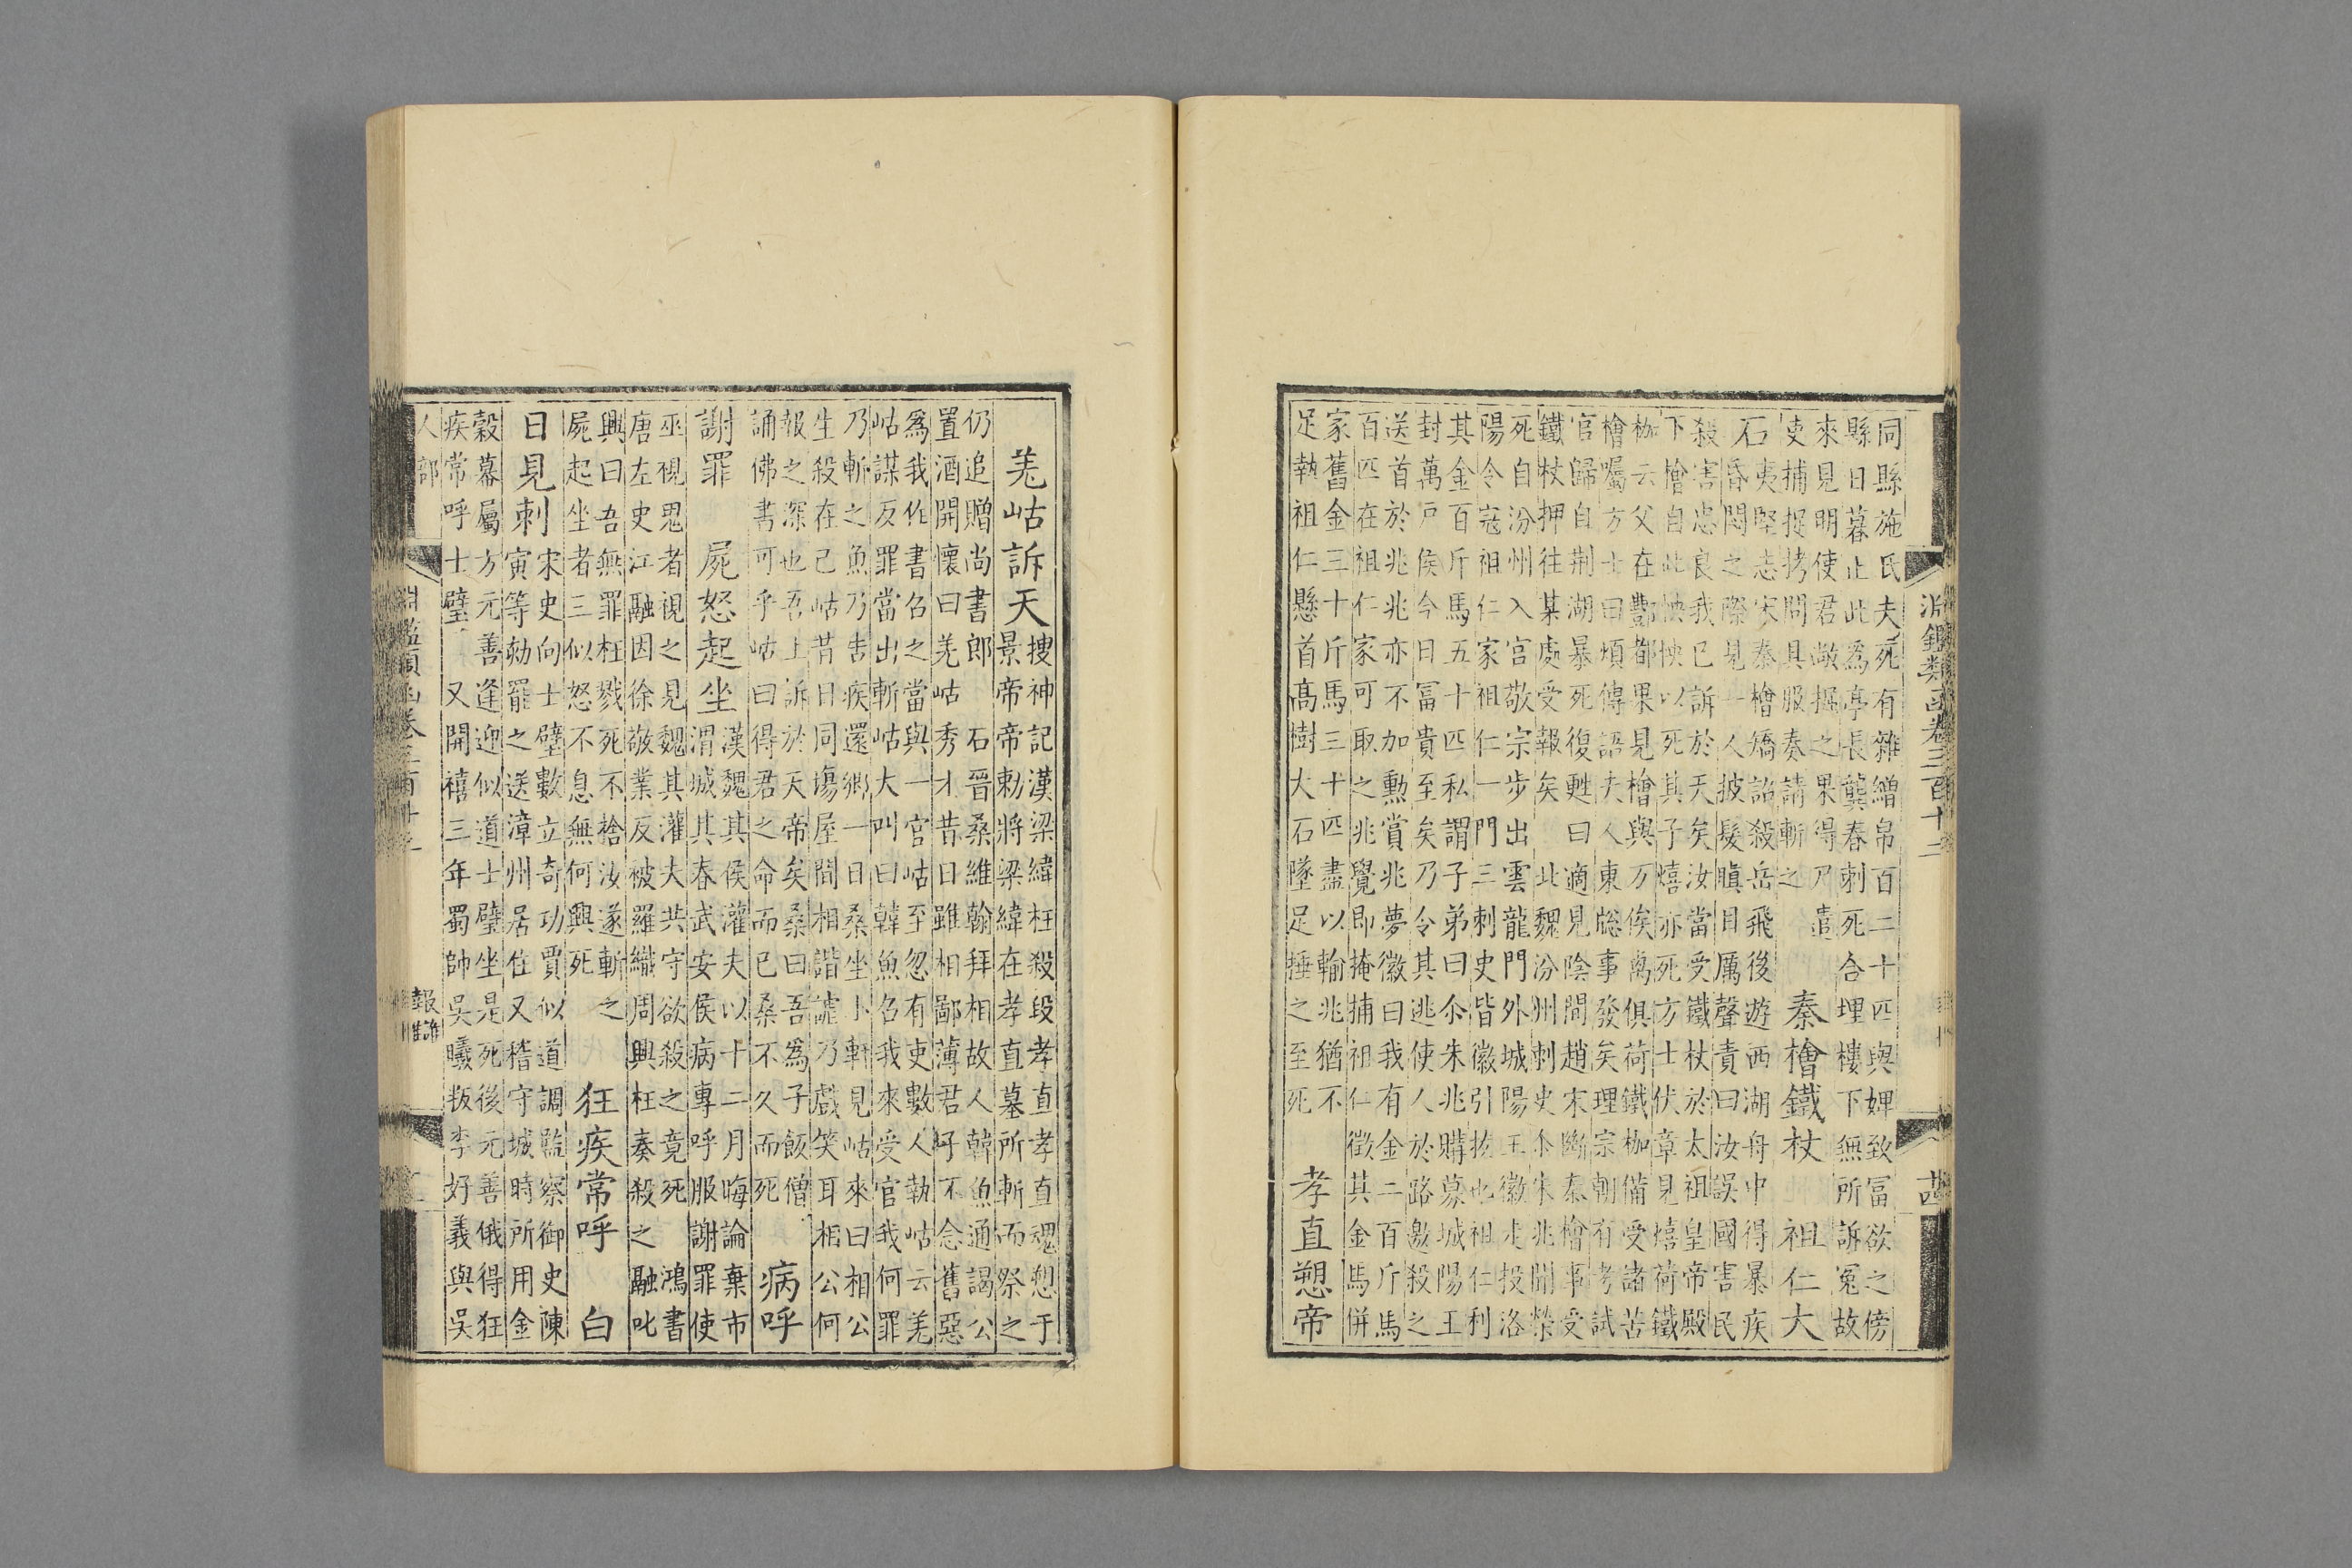 淵鑑類函卷三百十二
同縣施氏夫死有雜繒帛百二十匹與婢致富欲之傍
縣日暮止此為亭長龔春刺死合埋樓下無所訴冤故
來見明使君敞掘之果得乃遣
吏捕捉拷問具服奏請斬之
秦檜鐵杖　祖仁大
石
夷堅志宋秦檜矯詔殺岳飛後遊西湖舟中得暴疾
昏悶之際見一人披髮瞋目厲聲責曰汝誤國害民
殺害忠良我已訴於天矣汝當受鐵杖於太祖皇帝殿
下檜自此怏怏以死其子熺亦死方士伏章見熺荷鐵
枷云父在酆都果見檜與万俟卨俱荷鐵枷備受諸苦
檜囑方士曰煩傳語夫人東牕事發矣理宗朝有考試
官歸自荆湖暴死復甦曰適見陰間趙宋斷秦檜事受
鐵杖押往某處受報矣　北魏汾州刺史尒朱兆聞榮
死自汾州入宮敬宗步出雲龍門外城陽王徽走投洛
陽令寇祖仁家祖仁一門三刺史皆徽引拔也祖仁利
其金百斤馬五十匹私謂子弟曰尒朱兆購募城陽王
封萬戸侯今日富貴至矣乃令其逃使人於路邀殺之
送首於兆兆亦不加勳賞兆夢徽曰我有金二百斤馬
百匹在祖仁家可取之兆覺即掩捕祖仁徵其金馬併
家舊金三十斤馬三十匹盡以輸兆猶不
足執祖仁懸首高樹大石墜足捶之至死
孝直愬帝
羌岵訴天
搜神記漢梁緯枉殺段孝直孝直魂愬于
景帝帝勅將梁緯在孝直墓所斬而祭之
仍追贈尚書郎　石晉桑維翰拜相故人韓魚通謁公
置酒開懷曰羌岵秀才昔日雖相鄙薄君子不念舊惡
為我作書召之當與一官岵至忽有吏數人執岵云羌
岵謀反罪當出斬岵大叫曰韓魚召我來受官我何罪
乃斬之魚乃告疾還鄉一日桑坐小軒見岵來曰相公
生殺在己岵昔日同場屋間相諧謔乃戲笑耳相公何
報之深也吾上訴於天帝矣桑曰吾為子飯僧
誦佛書可乎岵曰得君之命而已桑不久而死
病呼
謝罪　屍怒起坐
漢魏其侯灌夫以十二月晦論棄市
渭城其春武安侯病專呼服謝罪使
巫視鬼者視之見魏其灌夫共守欲殺之竟死　鴻書
唐左史江融因徐敬業反被羅織周興枉奏殺之融叱
興曰吾無罪枉戮死不捨汝遂斬之
屍起坐者三似怒不息無何興死
狂疾常呼　白
日見刺
宋史向士璧數立奇功賈似道調監察御史陳
寅等劾罷之送漳州居住又稽守城時所用金
穀幕屬方元善逢迎似道士璧坐是死後元善俄得狂
疾常呼士璧　又開禧三年蜀帥吳曦叛李好義與吳
人部
報讎